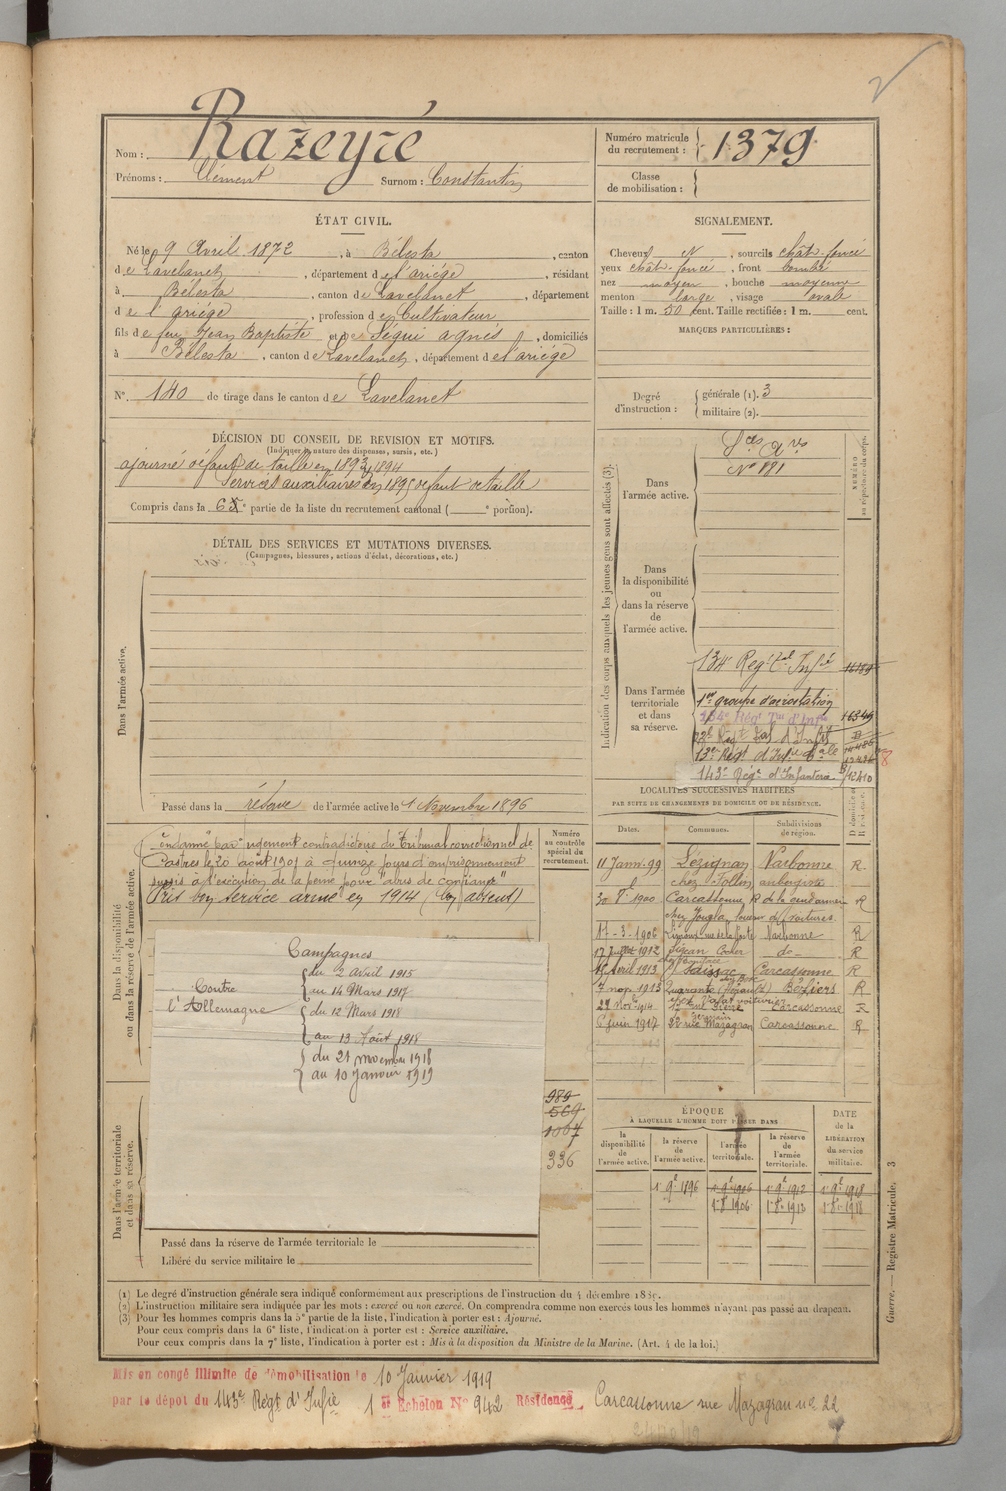 Nom : Razeyré
Prénoms : Clément Surnom : Constantin
Numéro matricule du recrutement : 1379
Classe de mobilisation :
ÉTAT CIVIL.
Né le 9 Avril 1872, à Bélesta, canton
de Lavelanet, département de l'ariége, résidant
à Bélesta, canton de Lavelanet, département
de l'ariége, profession de Cultivateur
fils de feu Jean Baptiste et de Ségui agnés, domiciliés
à Bélesta, canton de Lavelanet, département de l'ariége
N°. 140 de tirage dans le canton de Lavelanet
SIGNALEMENT.
Cheveux N, sourcils chât-foncé
yeux chât-foncé, front bombé
nez moyen, bouche moyenne
menton large, visage ovale
Taille : 1 m. 50 cent. Taille rectifiée : 1 m. cent.
MARQUES PARTICULIÈRES :
Degré d'instruction :
générale (1). 3
militaire (2).
DÉCISION DU CONSEIL DE REVISION ET MOTIFS.
(Indiquer la nature des dispenses, sursis, etc.)
ajourné défaut de taille en 1893, 1894
Services auxiliaires en 1895 défaut de taille
Compris dans la 6e partie de la liste du recrutement cantonal ( e portion).
DÉTAIL DES SERVICES ET MUTATIONS DIVERSES.
(Campagnes, blessures, actions d'éclat, décorations, etc.)
Dans l'armée active.
Passé dans la réserve de l'armée active le 1 Novembre 1896
Indication des corps auxquels les jeunes gens sont affectés (3).
NUMÉRO au répertoire du corps.
Dans l'armée active.
Sces Ares
N° 891
Dans la disponibilité ou dans la réserve de l'armée active.
Dans l'armée territoriale et dans sa réserve.
134e Régt tal Infie
1er groupe d'aérostation
134e Régt Tal d'Infie 16349
13e Régt d'Infie
143e Régt d'Infanterie 12410
Dans la disponibilité ou dans la réserve de l'armée active.
Condamné par jugement contradictoire du Tribunal correctionnel de
Castres le 20 août 1901 à quinze jours d'emprisonnement
sursis à l'exécution de la peine pour "abus de confiance"
Pris bon service armé en 1914 (bon absent)
Numéro au contrôle spécial du recrutement.
Campagnes
Contre l'Allemagne
du 2 Avril 1915
au 14 Mars 1917
du 12 Mars 1918
au 13 Août 1918
du 21 novembre 1918
au 10 Janvier 1919
989
569
1067
336
Dans l'armée territoriale et dans sa réserve.
Passé dans la réserve de l'armée territoriale le
Libéré du service militaire le
LOCALITÉS SUCCESSIVES HABITÉES
PAR SUITE DE CHANGEMENTS DE DOMICILE OU DE RÉSIDENCE.
Dates. Communes. Subdivisions de région.
11 Janv. 99 Lézignan Narbonne R
chez Follin aubergiste
1900 Carcassonne R de la gendarmerie R
chez Jougla loueur de voitures
17-3-1906 Narbonne R
17 Juillet 1912 Sigean Cocher do R
15 Avril 1913 Saissac Carcassonne R
7 nov 1913 Quarante (Hérault) Béziers R
29 Nov 1914 Carcassonne R
6 juin 1917 22 rue Mazagran Carcassonne R
ÉPOQUE
À LAQUELLE L'HOMME DOIT PASSER DANS
la disponibilité de l'armée active.
la réserve de l'armée active.
l'armée territoriale.
la réserve de l'armée territoriale.
DATE de la LIBÉRATION du service militaire.
1 9e 1896 1 9e 1906 1 9e 1912 1 9e 1918
1 8e 1906 1 8e 1913 1 8e 1918
(1) Le degré d'instruction générale sera indiqué conformément aux prescriptions de l'instruction du 4 décembre 1889.
(2) L'instruction militaire sera indiquée par les mots : exercé ou non exercé. On comprendra comme non exercés tous les hommes n'ayant pas passé au drapeau.
(3) Pour les hommes compris dans la 5e partie de la liste, l'indication à porter est : Ajourné.
Pour ceux compris dans la 6e liste, l'indication à porter est : Service auxiliaire.
Pour ceux compris dans la 7e liste, l'indication à porter est : Mis à la disposition du Ministre de la Marine. (Art. 4 de la loi.)
Guerre. — Registre Matricule. 3
Mis en congé illimité de démobilisation le 10 Janvier 1919
par le dépôt du 143e Régt d'Infie 1er Echelon N° 942 Résidence Carcassonne rue Mazagran no 22